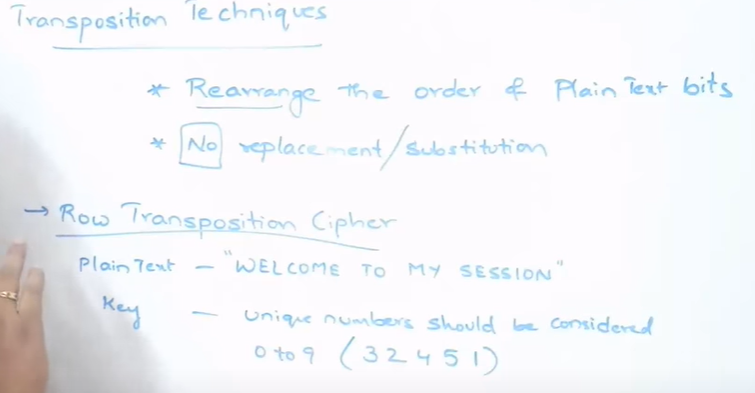 Transposition Techniques
* Rearrange the order of Plain Text bits
* No replacement/substitution
→ Row Transposition Cipher
Plain Text - "WELCOME TO MY SESSION"
Key - unique numbers should be considered
0 to 9 (3 2 4 5 1)